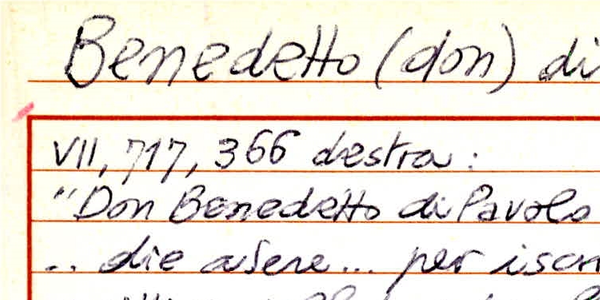 Benedetto (don) di
VII, 717, 366 destra :
"Don Benedetto di Pavolo
.. die avere... per iscri